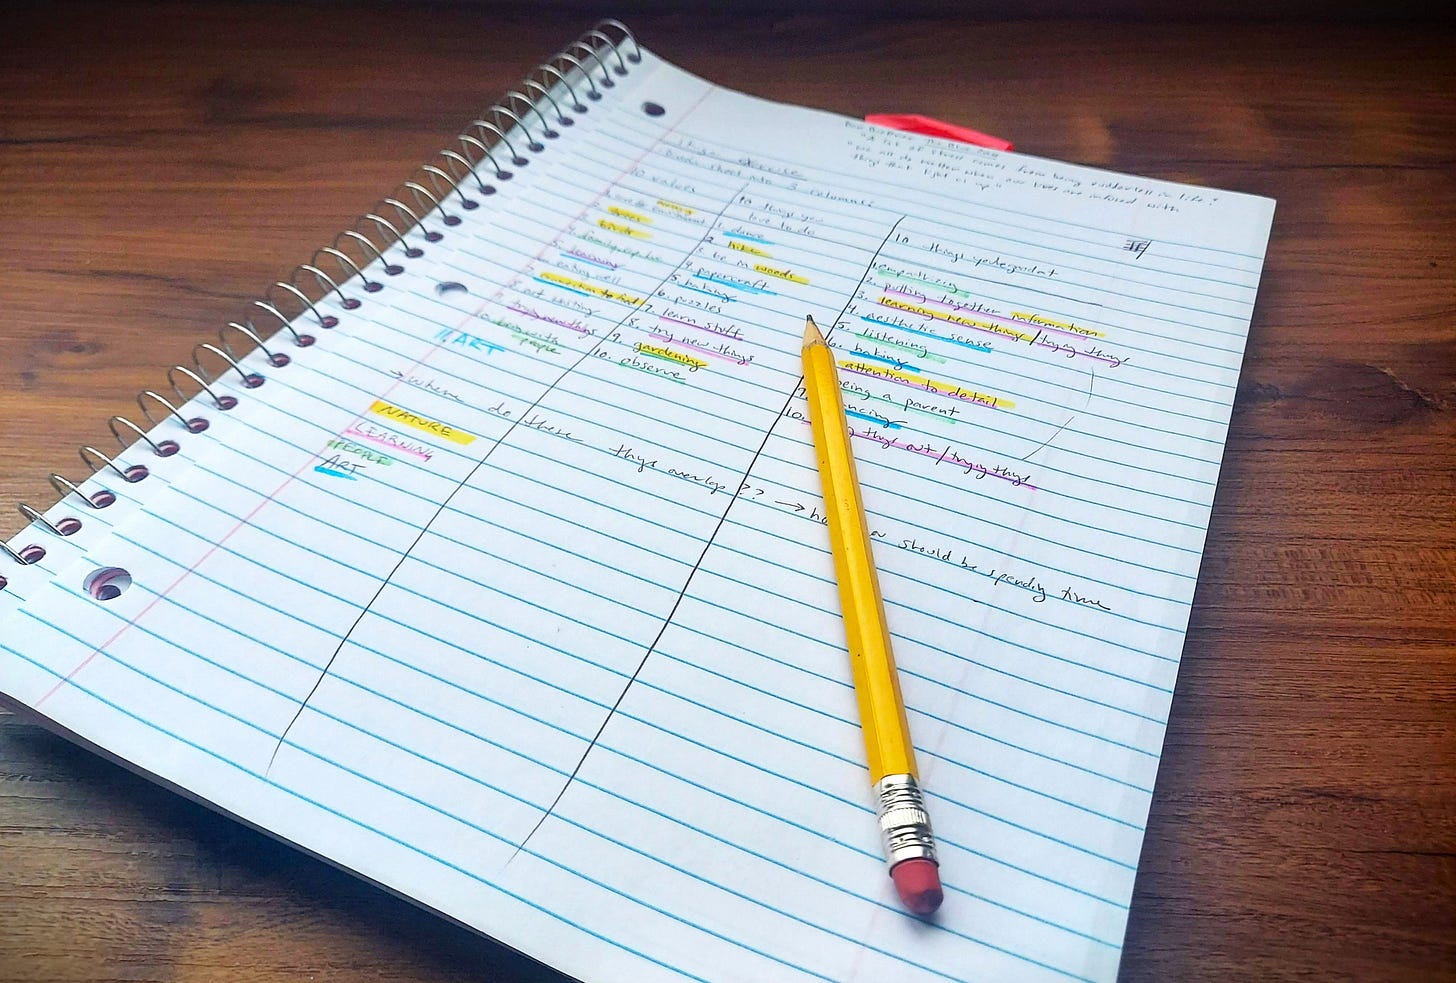 Dan Buettner The Blue Zone
"A lot of stress comes from being rudderless in life"
"we all do better when our lives are infused with
things that light us up"
exercise
Divide sheet into 3 columns:
10 values
trees
birds
5. learning
6. eating well
try new things
10. being with
people
11. ART
10 things you
love to do
1. dance
2. hike
3. be in woods
4. papercraft
5. baking
6. puzzles
7. learn stuff
8. try new things
9. gardening
10. observe
10 things you're good at
1. empathizing
2. pulling together information
3. learning new things / trying things
4. aesthetic sense
5. listening
6. baking
attention to detail
being a parent
ncing
10. things out / trying things
→ where do these things overlap ?? → ho you should be spending time
NATURE
LEARNING
PEOPLE
ART